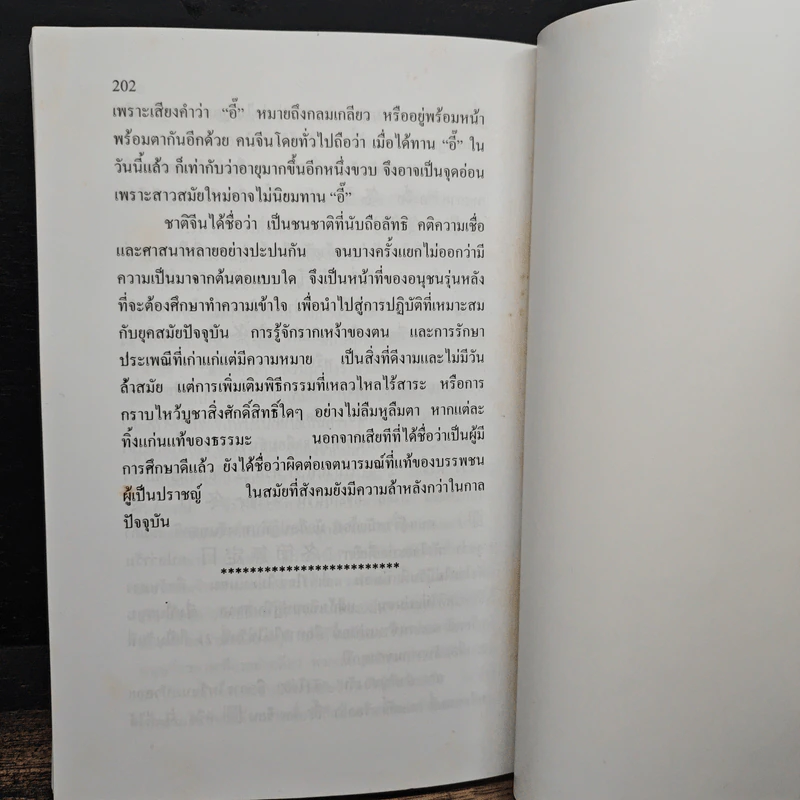 202
เพราะเสียงคำว่า “อี๊” หมายถึงกลมเกลียว หรืออยู่พร้อมหน้า
พร้อมตากันอีกด้วย คนจีนโดยทั่วไปถือว่า เมื่อได้ทาน “อี๊” ใน
วันนี้แล้ว ก็เท่ากับว่าอายุมากขึ้นอีกหนึ่งขวบ จึงอาจเป็นจุดอ่อน
เพราะสาวสมัยใหม่อาจไม่นิยมทาน “อี๊”
ชาติจีนได้ชื่อว่า เป็นชนชาติที่นับถือลัทธิ คติความเชื่อ
และศาสนาหลายอย่างปะปนกัน จนบางครั้งแยกไม่ออกว่ามี
ความเป็นมาจากต้นตอแบบใด จึงเป็นหน้าที่ของอนุชนรุ่นหลัง
ที่จะต้องศึกษาทำความเข้าใจ เพื่อนำไปสู่การปฏิบัติที่เหมาะสม
กับยุคสมัยปัจจุบัน การรู้จักรากเหง้าของตน และการรักษา
ประเพณีที่เก่าแก่แต่มีความหมาย เป็นสิ่งที่ดีงามและไม่มีวัน
ล้าสมัย แต่การเพิ่มเติมพิธีกรรมที่เหลวไหลไร้สาระ หรือการ
กราบไหว้บูชาสิ่งศักดิ์สิทธิ์ใดๆ อย่างไม่ลืมหูลืมตา หากแต่ละ
ทิ้งแก่นแท้ของธรรมะ นอกจากเสียทีที่ได้ชื่อว่าเป็นผู้มี
การศึกษาดีแล้ว ยังได้ชื่อว่าผิดต่อเจตนารมณ์ที่แท้ของบรรพชน
ผู้เป็นปราชญ์ ในสมัยที่สังคมยังมีความล้าหลังกว่าในกาล
ปัจจุบัน
*************************